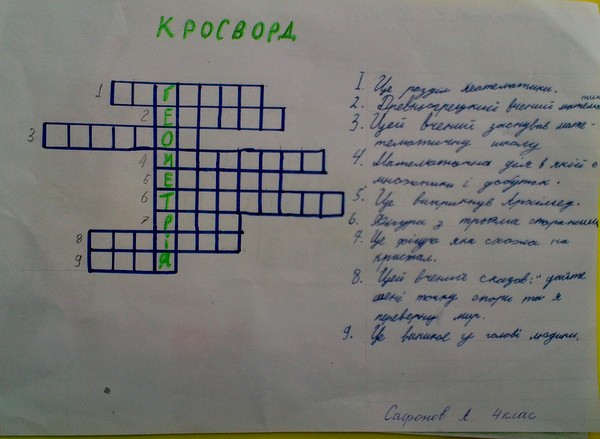 КРОСВОРД
1
Г
2
Е
3
О
4
М
5
Е
6
Т
7
Р
8
І
9
Я
1. Це розділ математики.
2. Древньогрецький вчений математик
3. Цей вчений заснував мате-
тематичну школу
4. Математична дія в якій є
множники і добуток.
5. Це викрикнув Архімед.
6. Фігура з трьома сторонами
7. Це фігура яка схожа на
кристал.
8. Цей вчений сказав: "дайте
мені точку опори та я
переверну мир.
9. Це виникає у голові людини.
Сафонов Я. 4 клас